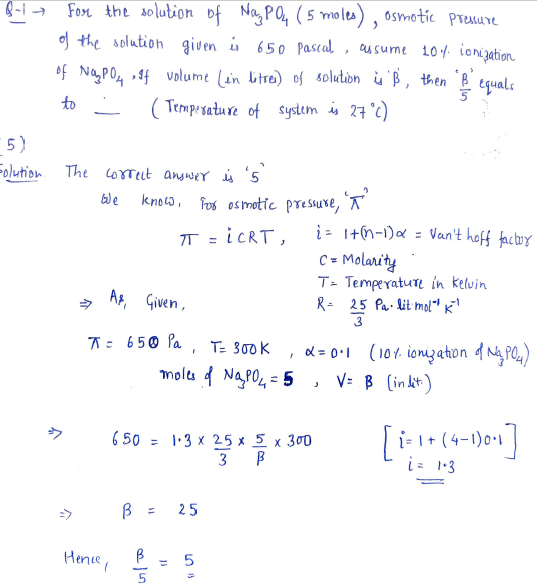 Q-1 → For the solution of Na₃PO₄ (5 moles), osmotic pressure
of the solution given is 650 Pascal, assume 10% ionization
of Na₃PO₄. If volume (in litres) of solution is 'β', then 'β/5' equals
to __ (Temperature of system is 27°C)
5)
Solution. The correct answer is '5'
We know, for osmotic pressure, 'π'
π = iCRT, i = 1+(n-1)α = Van't hoff factor
C = Molarity
T = Temperature in Kelvin
⇒ As, Given, R = 25/3 Pa. lit mol⁻¹ K⁻¹
π = 650 Pa, T = 300K, α = 0.1 (10% ionization of Na₃PO₄)
moles of Na₃PO₄ = 5, V = β (in lit)
⇒ 650 = 1.3 x 25/3 x 5/β x 300 [i = 1 + (4-1)0.1]
i = 1.3
⇒ β = 25
Hence, β/5 = 5